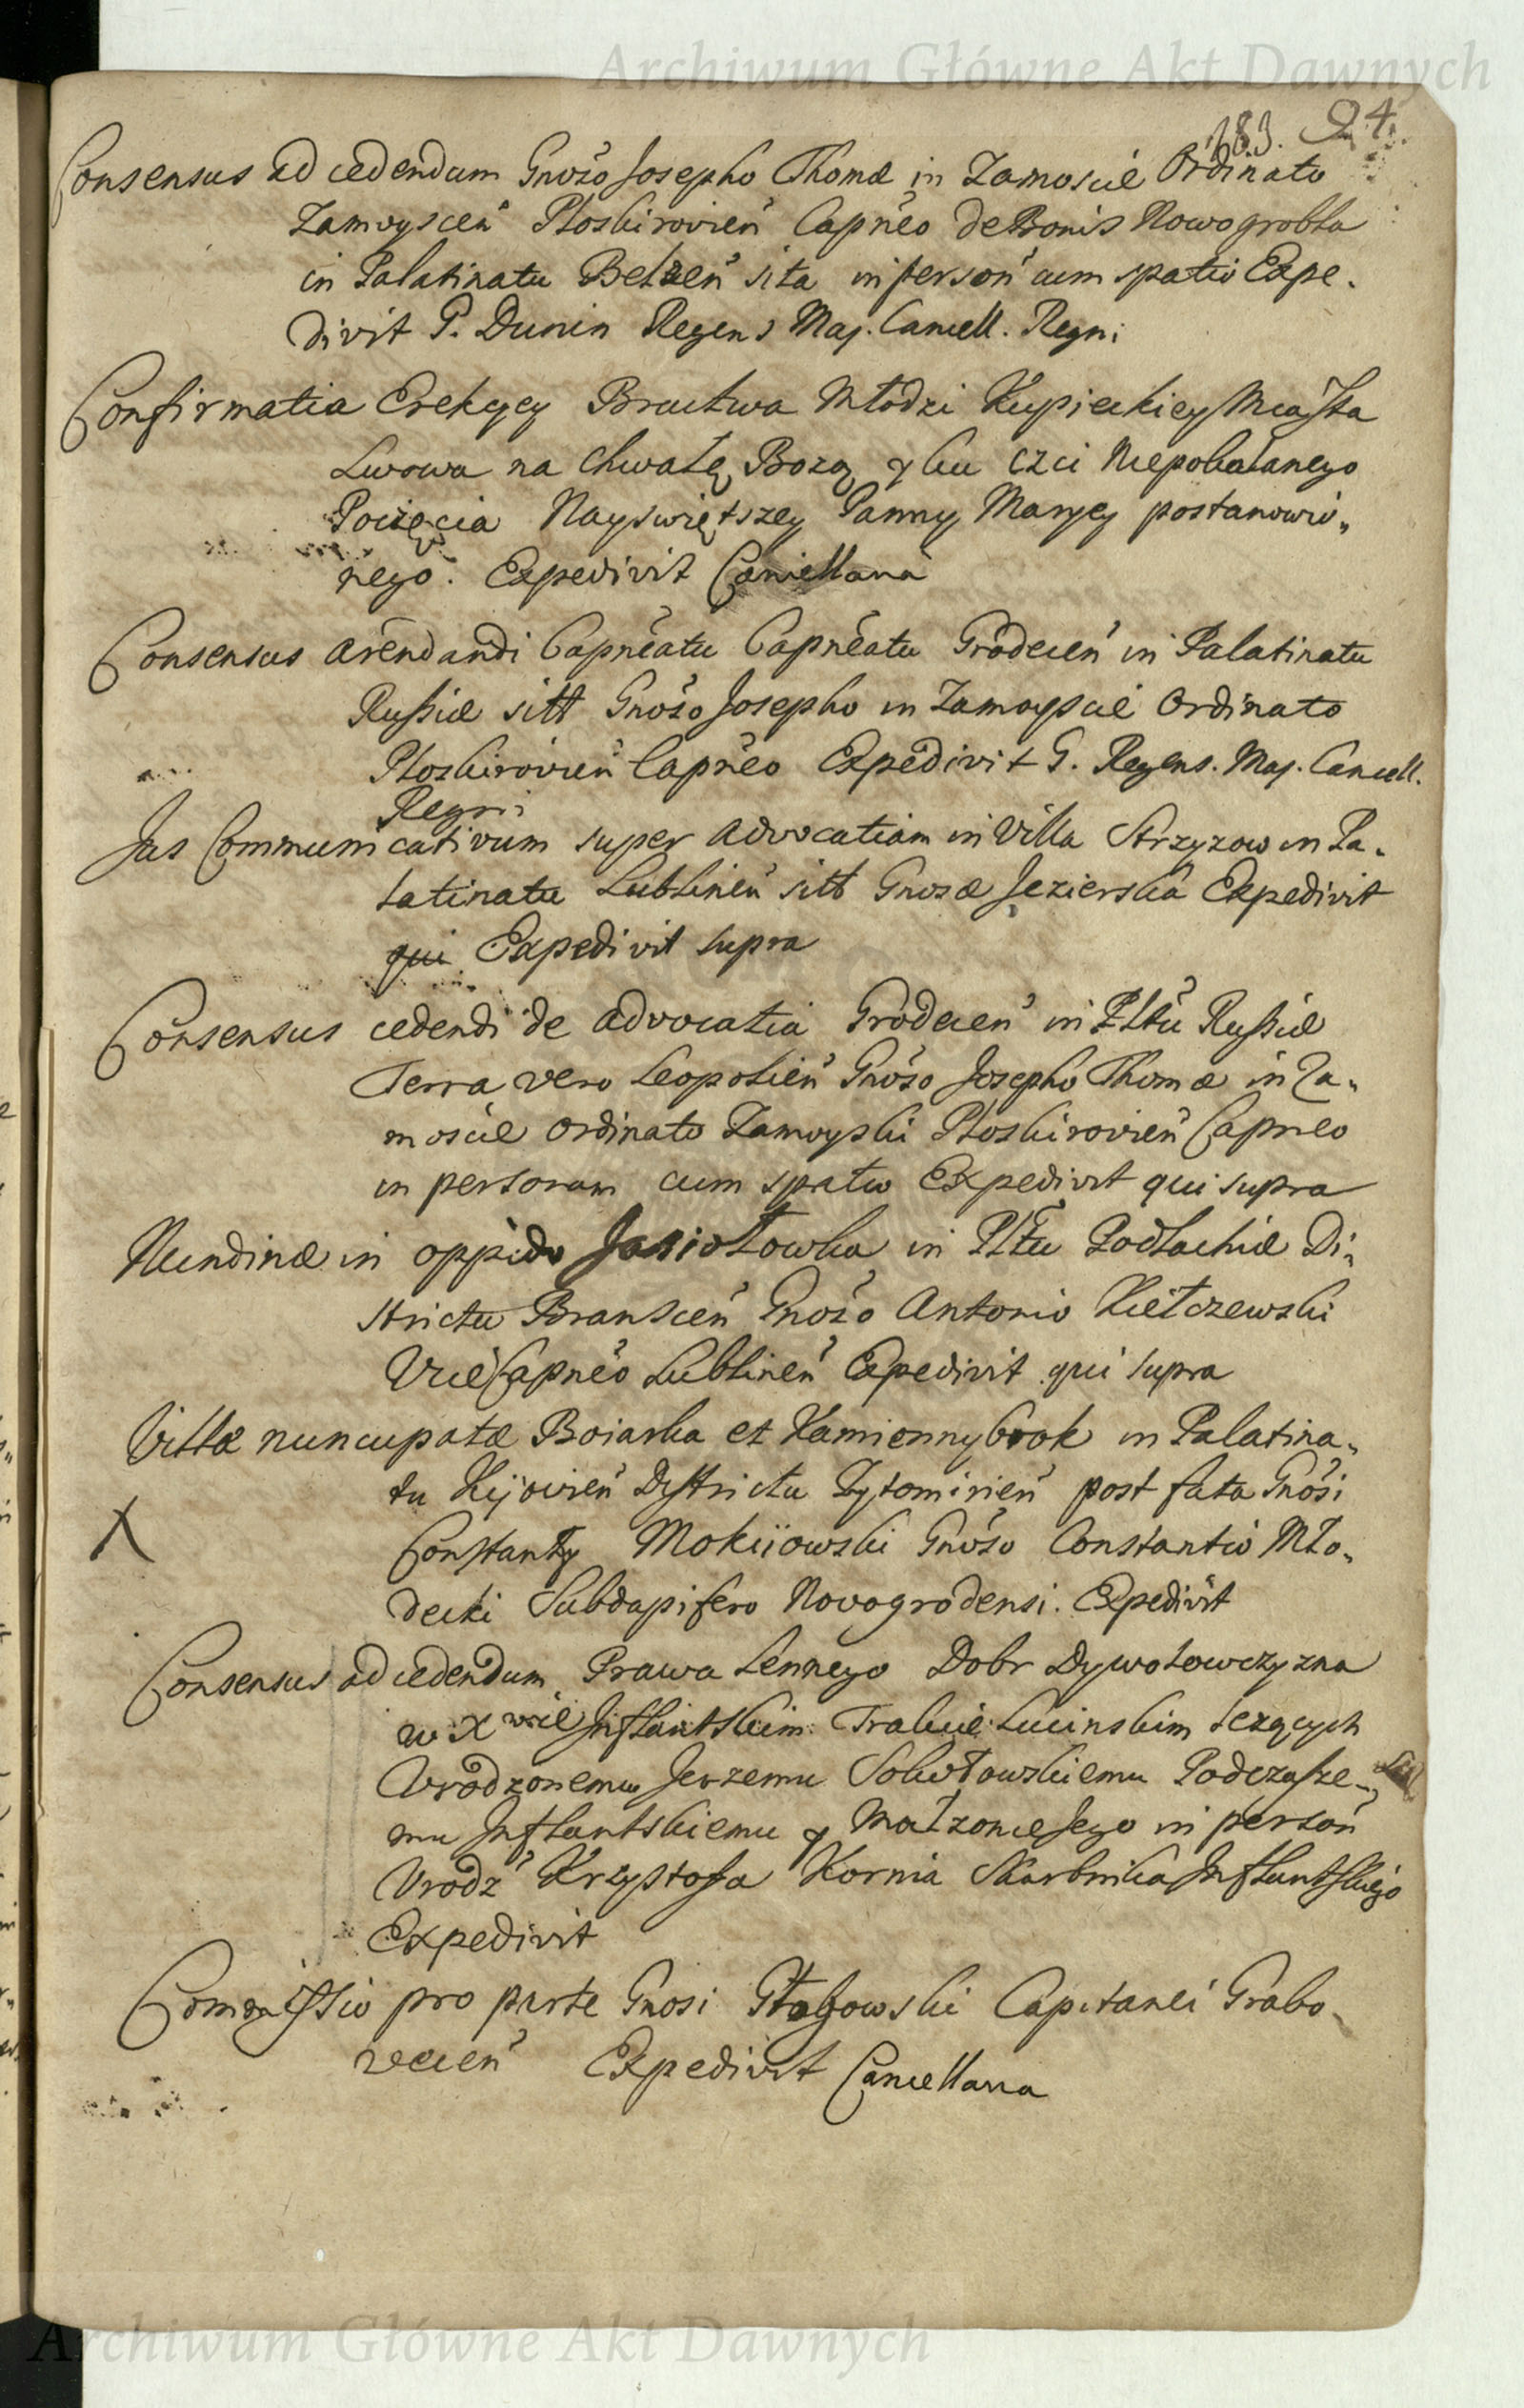 Archiwum Główne Akt Dawnych
183. 94.
Consensus ad cedendum Gnoso Josepho Thomæ in Zamoscie Ordinato
Zamoyscen Ploskirovien Capneo de Bonis Nowogrobla
in Palatinatu Belzen sita in person cum spatio Expe.
divit P. Dunin Regens Maj. Cancell. Regni
Confirmatia Erekcyey Bractwa Młodzi Kupieckiey Miasta
Lwowa na Chwałę Bozą y ku czci Niepokalanego
Poczęcia Nayswiętszey Panny Maryey postanowio„
nego. Expedivit Cancellaria
Consensus arendandi Capneatu Capneatu Grodecen in Palatinatu
Russiæ sitt Gnoso Josepho in Zamoyscie Ordinato
Ploskirovien Capneo Expedivit G. Regens. Maj. Cancell.
Regni
Jus Communicativum super Advocatiam in Villa Strzyzow in Pa„
latinatu Lublinen sitt Gnosæ Jezierska Expedivit
qui Expedivit supra
Consensus cedendi de advocatia Grodecen in Pltu Russiæ
Terra vero Leopolien Gnoso Josepho Thomæ in Za„
moscie Ordinato Zamoyski Ploskirovien Capneo
in personam cum spatio Expedivit qui supra
Nundinæ in oppido Jasiołowka in Pltu Podlachiæ Di„
strictu Branscen Gnoso Antonio Kiełczewski
Vice Capneo Lublinen Expedivit qui supra
Villæ nuncupatæ Boiarka et Kamiennybrok in Palatina„
tu Kijovien Districtu Zytomirien post fata Gnosi
X Constanty Mokiiowski Gnoso Constantio Mło„
decki Subdapifero Novogrodensi. Expedivit
Consensus ad cedendum Prawa Lennego Dobr Dywołowczyzna
w X wie Inflantskim Trakcie Lucinskim lezących
Urodzonemu Jerzemu Sokołowskiemu Podczasze„
mu Inflantskiemu y Małzonce Jego in person
Urodz Krzysztofa Kornia Skarbnika Inflantskiego
Expedivit
Commissio pro parte Gnosi Capitanei Grabo„
vecien Expedivit Cancellaria
Archiwum Główne Akt Dawnych